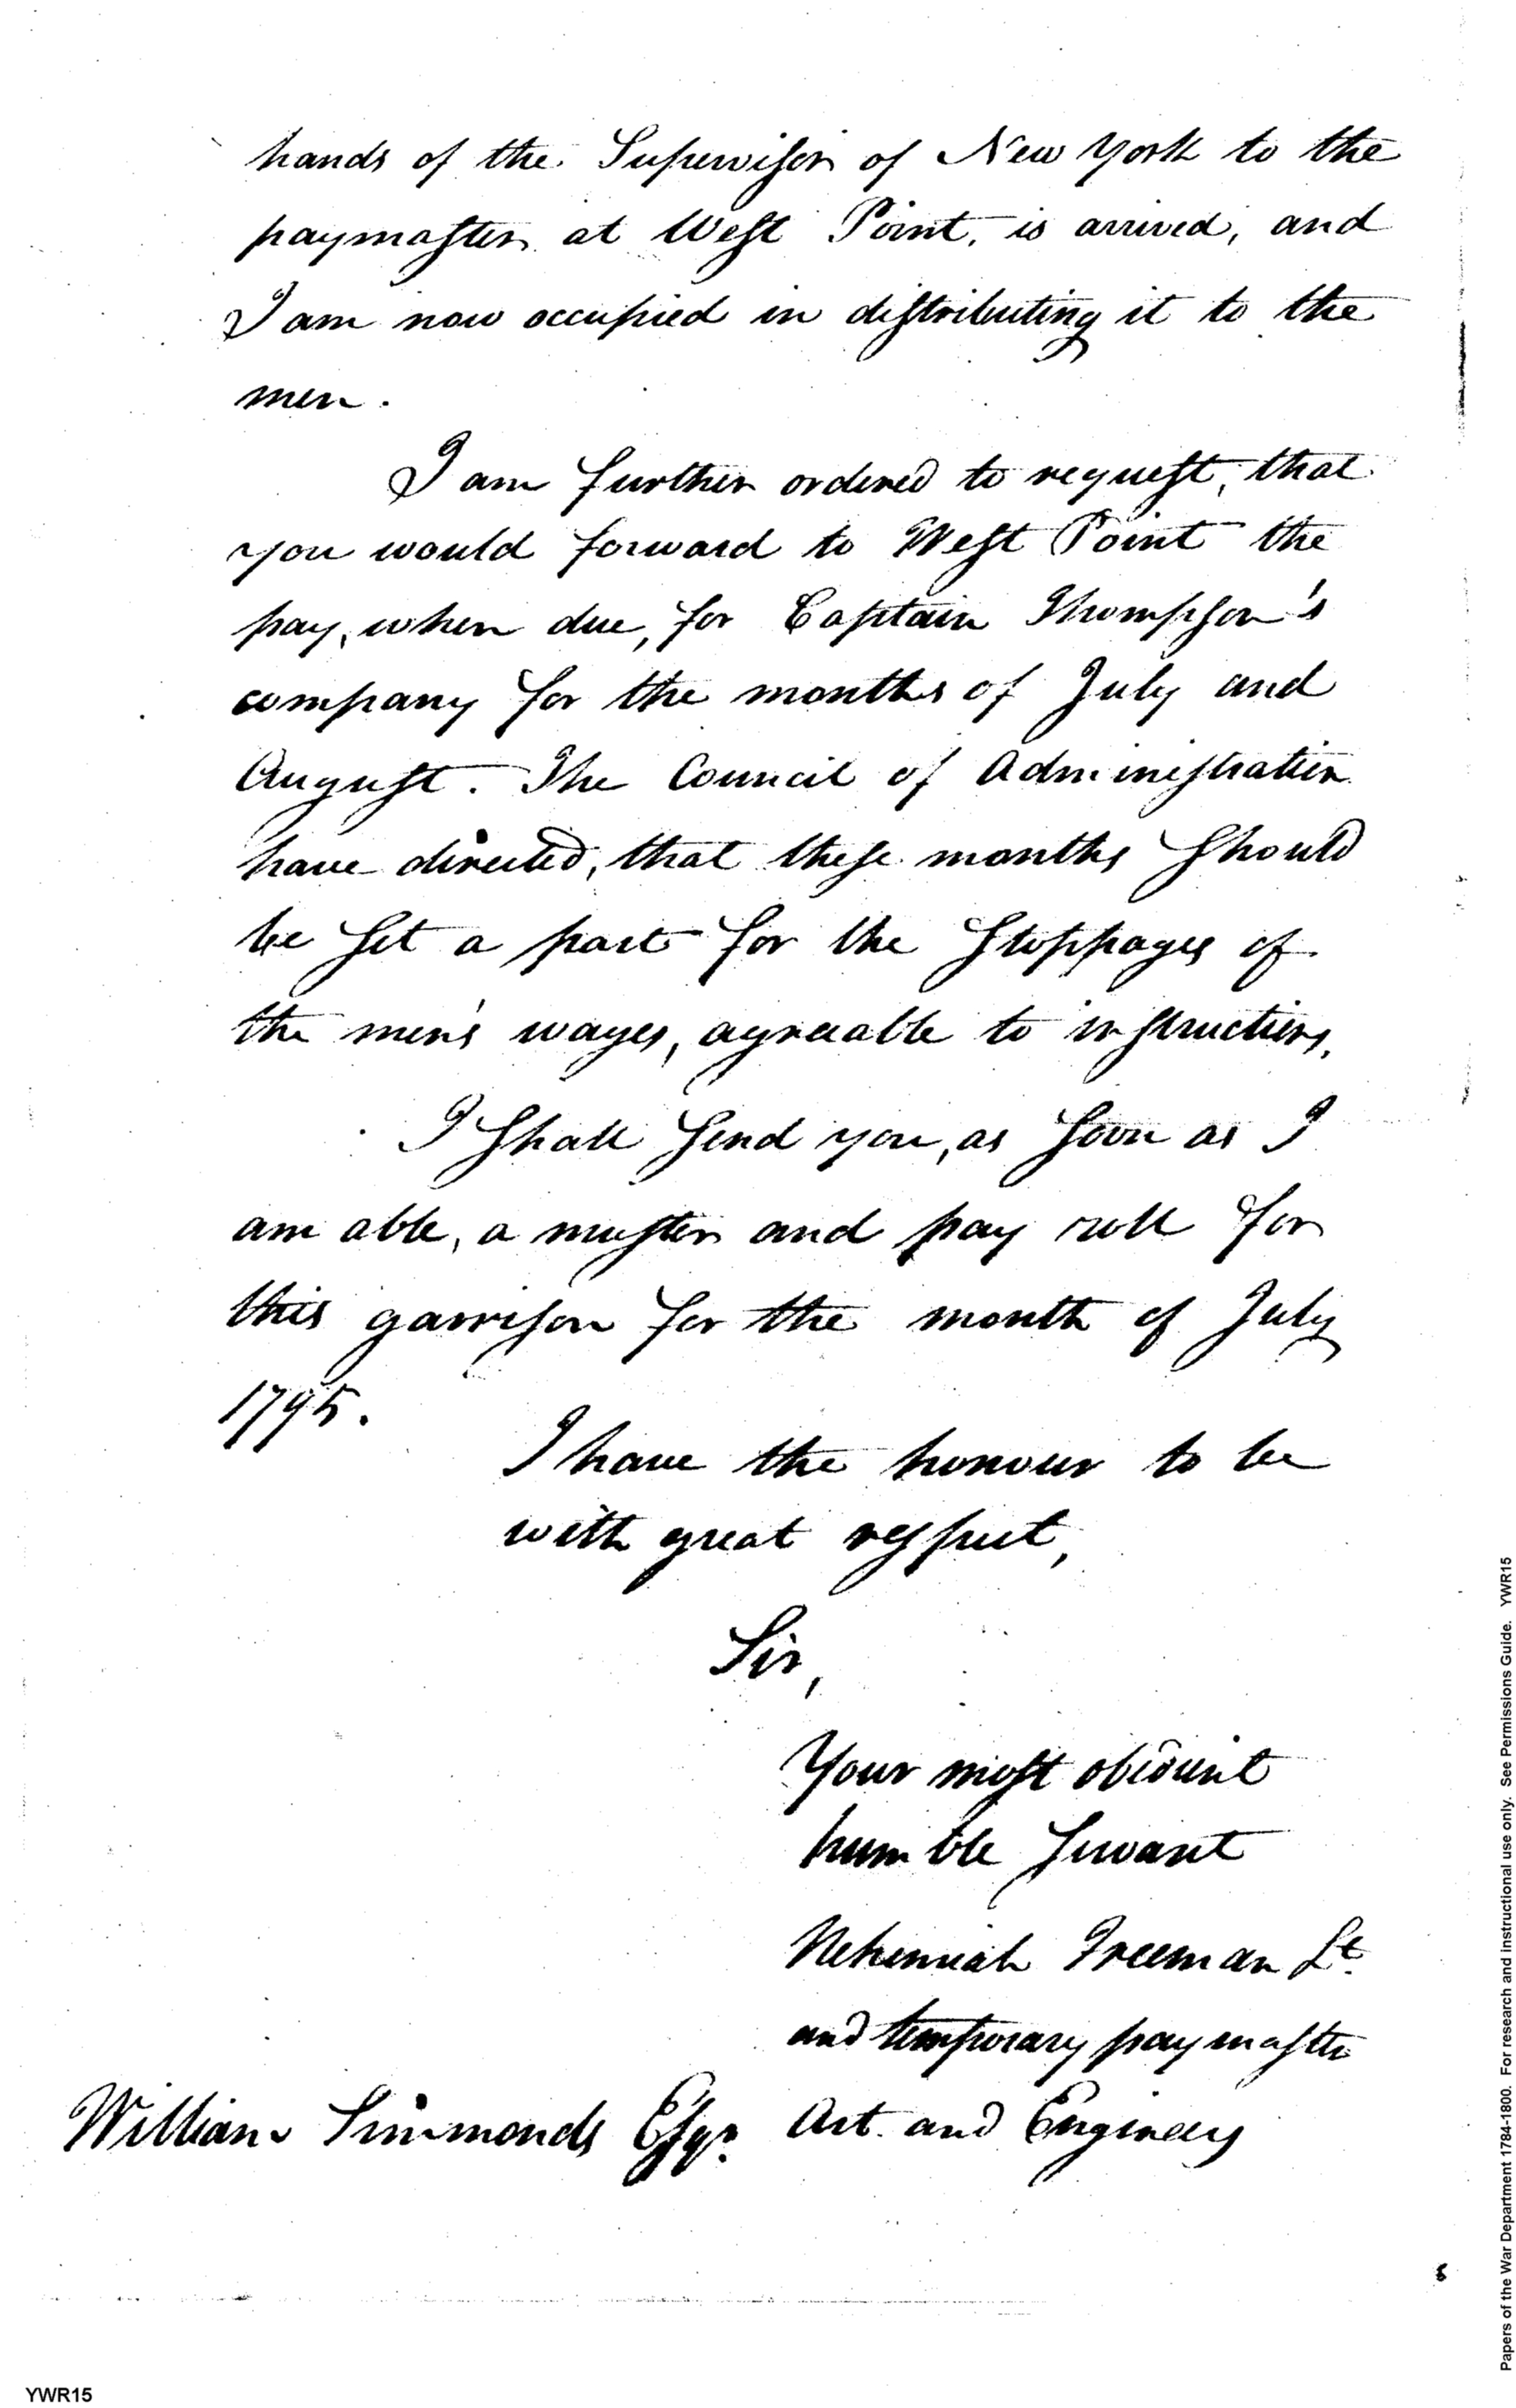 hands of the Supervisor of New York to the
paymaster at West Point, is arrived, and
I am now occupied in distributing it to the
men.
I am further ordered to request, that
you would forward to West Point the
pay, when due, for Captain Thompson's
company for the months of July and
August. The Council of Administration
have directed, that these months should
be set a part for the stoppages of
the men's wages, agreeable to instructions.
I shall send you, as soon as I
am able, a muster and pay roll for
this garrison for the month of July
1795.
I have the honour to be
with great respect,
Sir,
Your most obedient
humble servant
Nehemiah Freeman Lt.
and temporary paymaster
William Simmonds Esqr. Art. and Engineers
Papers of the War Department 1784-1800. For research and instructional use only. See Permissions Guide. YWR15
YWR15